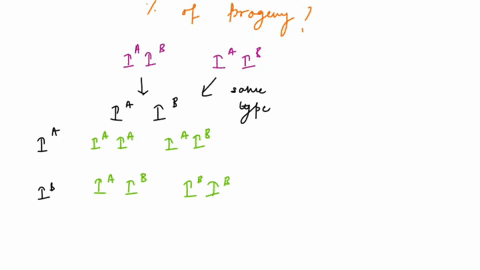 % of progeny?
I^A I^B I^A I^B
same
I^A I^B type
I^A I^A I^A I^A I^B
I^B I^A I^B I^B I^B